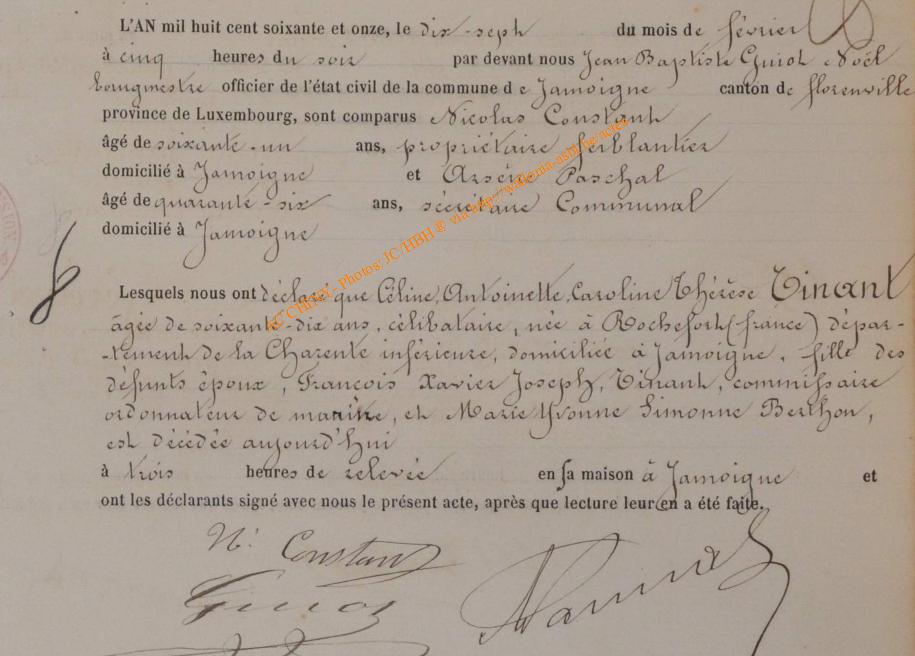 L'AN mil huit cent soixante et onze, le dix-sept du mois de février
à cinq heures du soir par devant nous Jean Baptiste Guiot Noël
bourgmestre officier de l'état civil de la commune de Jamoigne canton de florenville
province de Luxembourg, sont comparus Nicolas Constant
âgé de soixante-un ans, propriétaire ferblantier
domicilié à Jamoigne et Arsène Paschal
âgé de quarante-six ans, sécrétaire Communal
domicilié à Jamoigne
8
Lesquels nous ont déclaré que Céline, Antoinette, Caroline Thérèse Tinant
âgée de soixante-dix ans, célibataire, née à Rochefort (france) dépar-
-tement de la Charente inférieure, domiciliée à Jamoigne, fille des
défunts époux, François Xavier Joseph, Tinant, commissaire
ordonnateur de marine, et Marie Yvonne Simonne Berthon,
est décédée aujourd'hui
à trois heures de relevée en sa maison à Jamoigne et
ont les déclarants signé avec nous le présent acte, après que lecture leur en a été faite.
N. Constant
Guiot